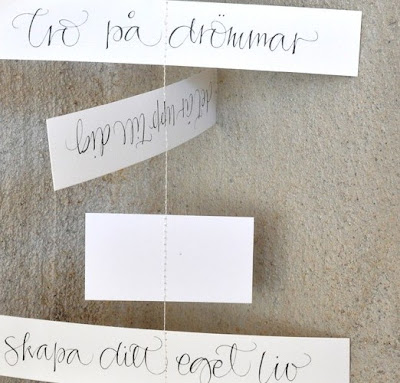 tro på drömmar
det är upp till dig
skapa ditt eget liv